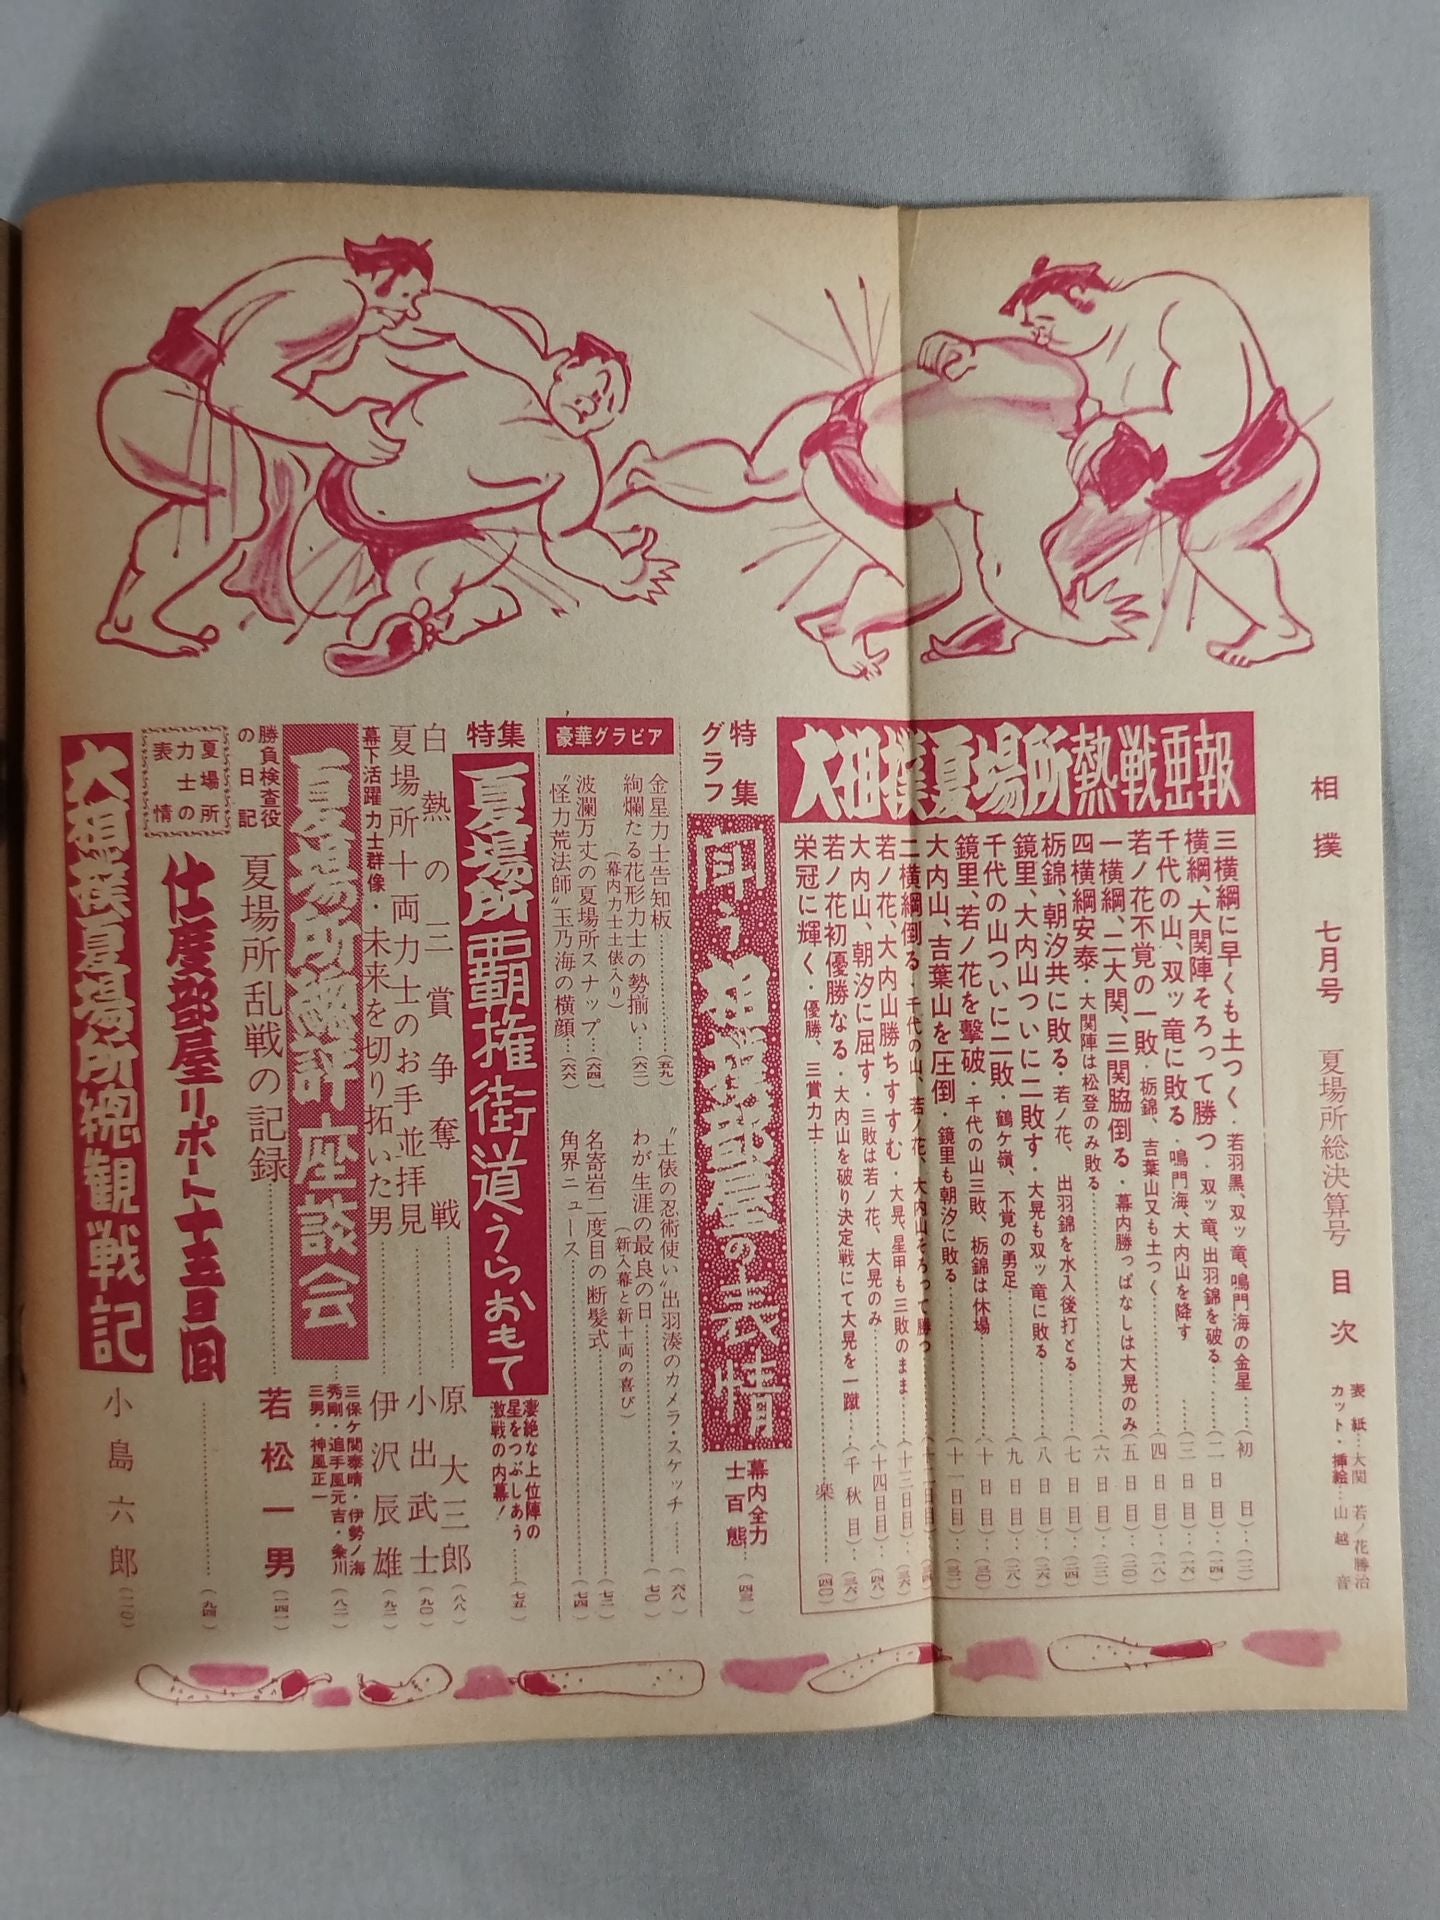 相撲 七月号 夏場所総決算号 目次
表紙…大関 若ノ花勝治
カット・挿絵…山越 音
大相撲夏場所熱戦画報
三横綱に早くも土つく・若羽黒、双ッ竜、鳴門海の金星…(初日)…(一二)
横綱、大関陣そろって勝つ・双ッ竜、出羽錦を破る…(二日目)…(一四)
千代の山、双ッ竜に敗る・鳴門海、大内山を降す…(三日目)…(一六)
若ノ花不覚の一敗・栃錦、吉葉山又も土つく…(四日目)…(一八)
一横綱、二大関、三関脇倒る・幕内勝っぱなしは大晃のみ(五日目)…(二〇)
四横綱安泰・大関陣は松登のみ敗る…(六日目)…(二二)
栃錦、朝汐共に敗る・若ノ花、出羽錦を水入後打とる…(七日目)…(二四)
鏡里、大内山ついに二敗す・大晃も双ッ竜に敗る…(八日目)…(二六)
千代の山ついに二敗・鶴ケ嶺、不覚の勇足…(九日目)…(二八)
鏡里、若ノ花を撃破・千代の山三敗、栃錦は休場…(十日目)…(三〇)
大内山、吉葉山を圧倒・鏡里も朝汐に敗る…(十一日目)…(三二)
二横綱倒る・千代の山、若ノ花、大内山そろって勝つ…(十二日目)…(三四)
若ノ花、大内山勝ちすすむ・大晃、星甲も三敗のまま…(十三日目)…(三六)
大内山、朝汐に屈す・三敗は若ノ花、大晃のみ…(十四日目)…(三八)
若ノ花初優勝なる・大内山を破り決定戦にて大晃を一蹴…(千秋楽)…(三六)
栄冠に輝く・優勝、三賞力士…(四〇)
特集グラフ
闘う相撲部屋の表情
幕内全力士百態…(四三)
豪華グラビア
金星力士告知板…(五九)
絢爛たる花形力士の勢揃い…(六二)
(幕内力士土俵入り)
波瀾万丈の夏場所スナップ…(六四)
“怪力荒法師”玉乃海の横顔…(六六)
“土俵の忍術使い”出羽湊のカメラ・スケッチ…(六八)
わが生涯の最良の日…(七〇)
(新入幕と新十両の喜び)
名寄岩二度目の断髪式…(七二)
角界ニュース…(七四)
特集
夏場所覇権街道うらおもて
凄絶な上位陣の星をつぶしあう激戦の内幕!…(七五)
白熱の三賞争奪戦…原大三郎(八八)
夏場所十両力士のお手並拝見…小出武士(九〇)
幕下活躍力士群像・未来を切り拓いた男…伊沢辰雄(九二)
夏場所総評座談会
三保ケ関泰晴・伊勢ノ海秀剛・追手風元吉・粂川三男・神風正一…(八二)
勝負検査役の日記
夏場所乱戦の記録…若松一男(一四一)
夏場所力士の表情
仕度部屋リポート十五日間…(九四)
大相撲夏場所総観戦記 小島六郎(一二〇)